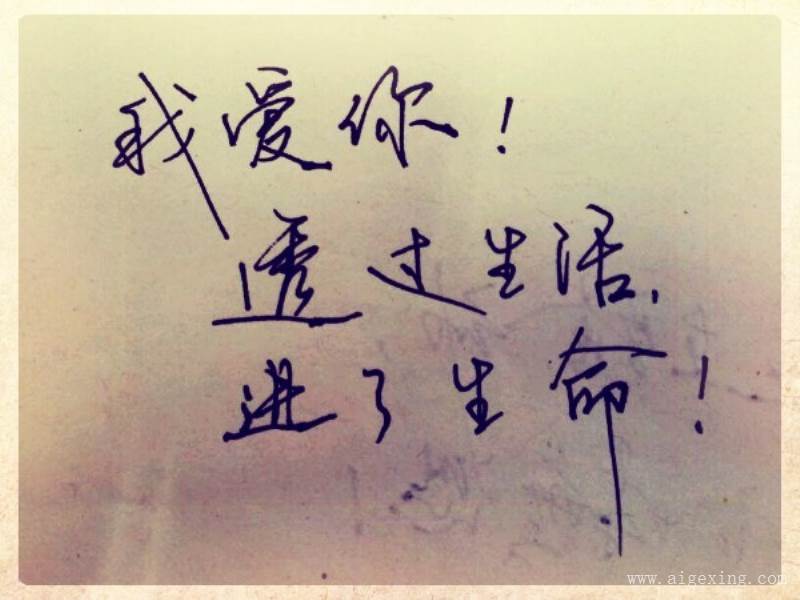 我爱你！
透过生活，
进了生命！
www.aigexing.com